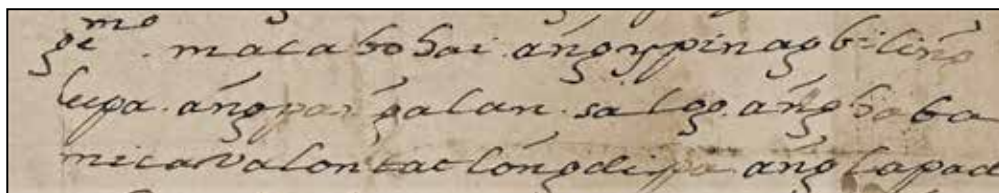 gmo. maca bohai. áng ypinag biling
lupa. áng pangalan. sa log. áng haba
mica valon tat lóng dipa áng lapad